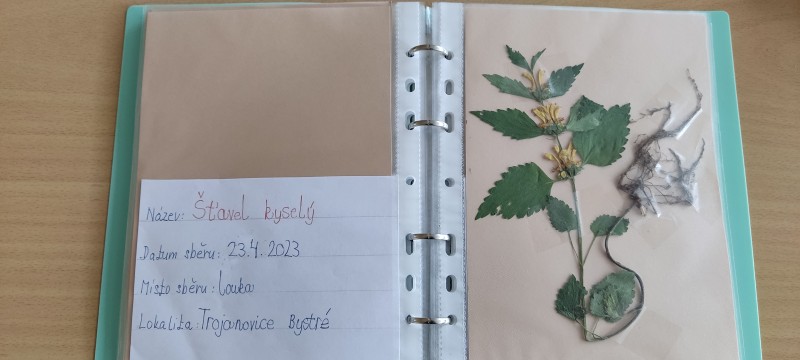 Název: Šťavel kyselý
Datum sběru: 23.4.2023
Místo sběru: Louka
Lokalita: Trojanovice Bystré